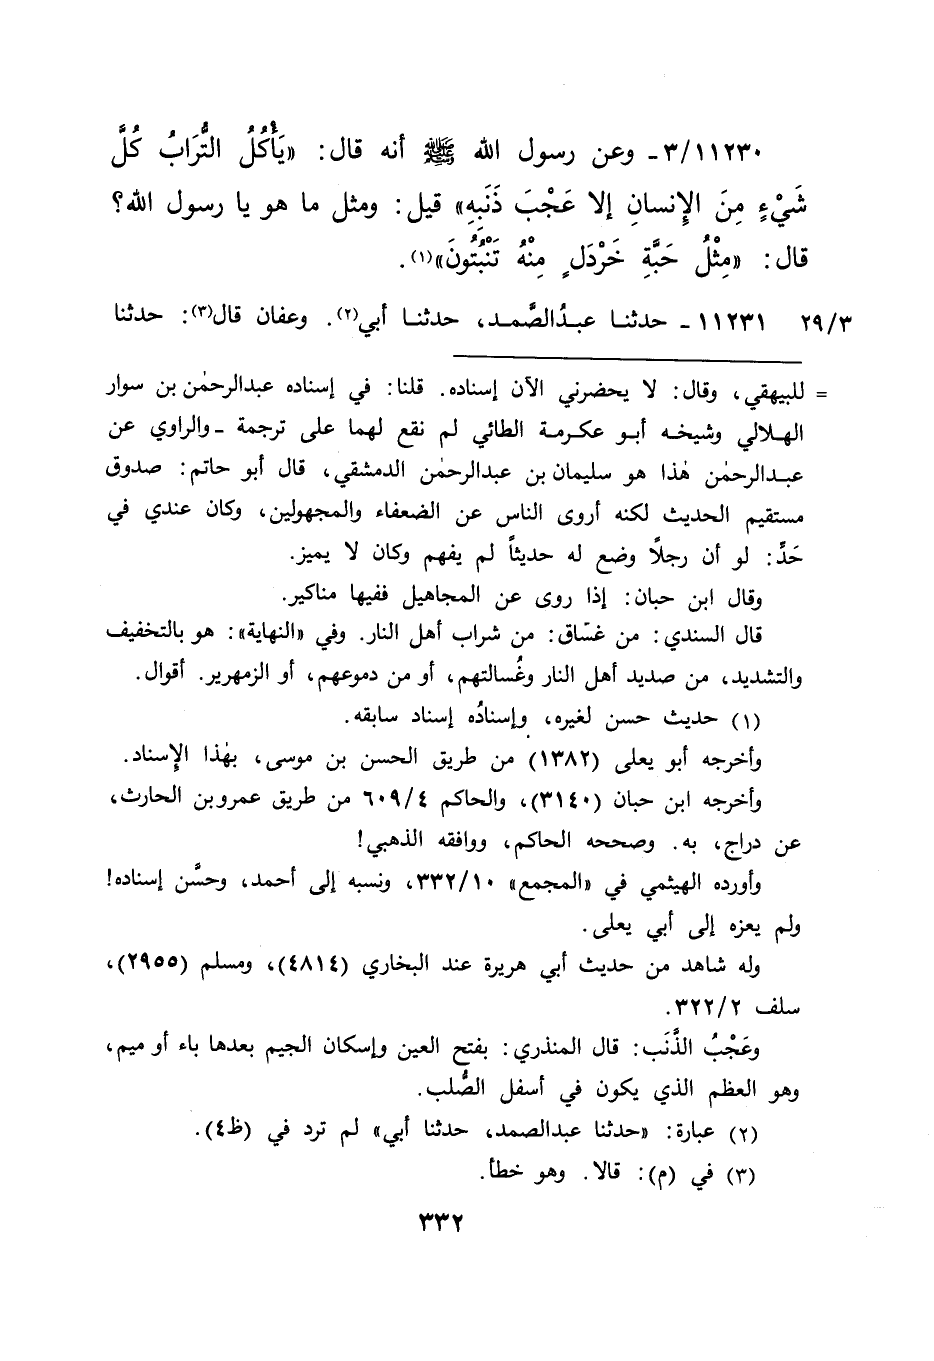 ٣/١١٢٣٠ـ وعن رسول الله ﷺ أنه قال: «يَأْكُلُ التُّرَابُ كُلَّ
شَيْءٍ مِنَ الإنسانِ إلا عَجْبَ ذَنَبِهِ» قيل: ومثل ما هو يا رسول الله؟
قال: «مِثْلُ حَبَّةِ خَرْدَلٍ مِنْهُ تَنْبُتُونَ»(١).
٢٩/٣ ١١٢٣١ ـ حدثنا عبدُالصَّمد، حدثنا أبي(٢). وعفان قال(٣): حدثنا
= للبيهقي، وقال: لا يحضرني الآن إسناده. قلنا: في إسناده عبدالرحمٰن بن سوار
الهلالي وشيخه أبو عكرمة الطائي لم نقع لهما على ترجمة ـ والراوي عن
عبدالرحمٰن هٰذا هو سليمان بن عبدالرحمٰن الدمشقي، قال أبو حاتم: صدوق
مستقيم الحديث لكنه أروى الناس عن الضعفاء والمجهولين، وكان عندي في
حَدٍّ: لو أن رجلًا وضع له حديثاً لم يفهم وكان لا يميز.
وقال ابن حبان: إذا روى عن المجاهيل ففيها مناكير.
قال السندي: من غسّاق: من شراب أهل النار. وفي «النهاية»: هو بالتخفيف
والتشديد، من صديد أهل النار وغُسالتهم، أو من دموعهم، أو الزمهرير. أقوال.
(١) حديث حسن لغيره، وإسنادُه إسناد سابقه.
وأخرجه أبو يعلى (١٣٨٢) من طريق الحسن بن موسى، بهٰذا الإسناد.
وأخرجه ابن حبان (٣١٤٠)، والحاكم ٦٠٩/٤ من طريق عمرو بن الحارث،
عن دراج، به. وصححه الحاكم، ووافقه الذهبي!
وأورده الهيثمي في «المجمع» ٣٣٢/١٠، ونسبه إلى أحمد، وحسَّن إسناده!
ولم يعزه إلى أبي يعلى.
وله شاهد من حديث أبي هريرة عند البخاري (٤٨١٤)، ومسلم (٢٩٥٥)،
سلف ٣٢٢/٢.
وعَجْبُ الذَّنَب: قال المنذري: بفتح العين وإسكان الجيم بعدها باء أو ميم،
وهو العظم الذي يكون في أسفل الصُّلب.
(٢) عبارة: «حدثنا عبدالصمد، حدثنا أبي» لم ترد في (ظ٤).
(٣) في (م): قالا. وهو خطأ.
٣٣٢